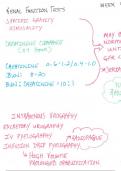 RENAL FUNCTION TESTS
WEEK
SPECIFIC GRAVITY
OSMOLALITY
CREATININE CLEARANCE
(24 HOUR)
MAY B
NORMA
UNTI
GFR <
CREATININE 0.6-1.2/0.4-1.0
BUN 8-20
BUN: CREATININE 10:1
INTRAVENOUS UROGRAPHY
EXCRETORY UROGRAPHY
IV PYELOGRAPHY
INFUSION DRIP PYELOGRAPHY
HIGH VOLUME
PROLONGED OPACIFICATION